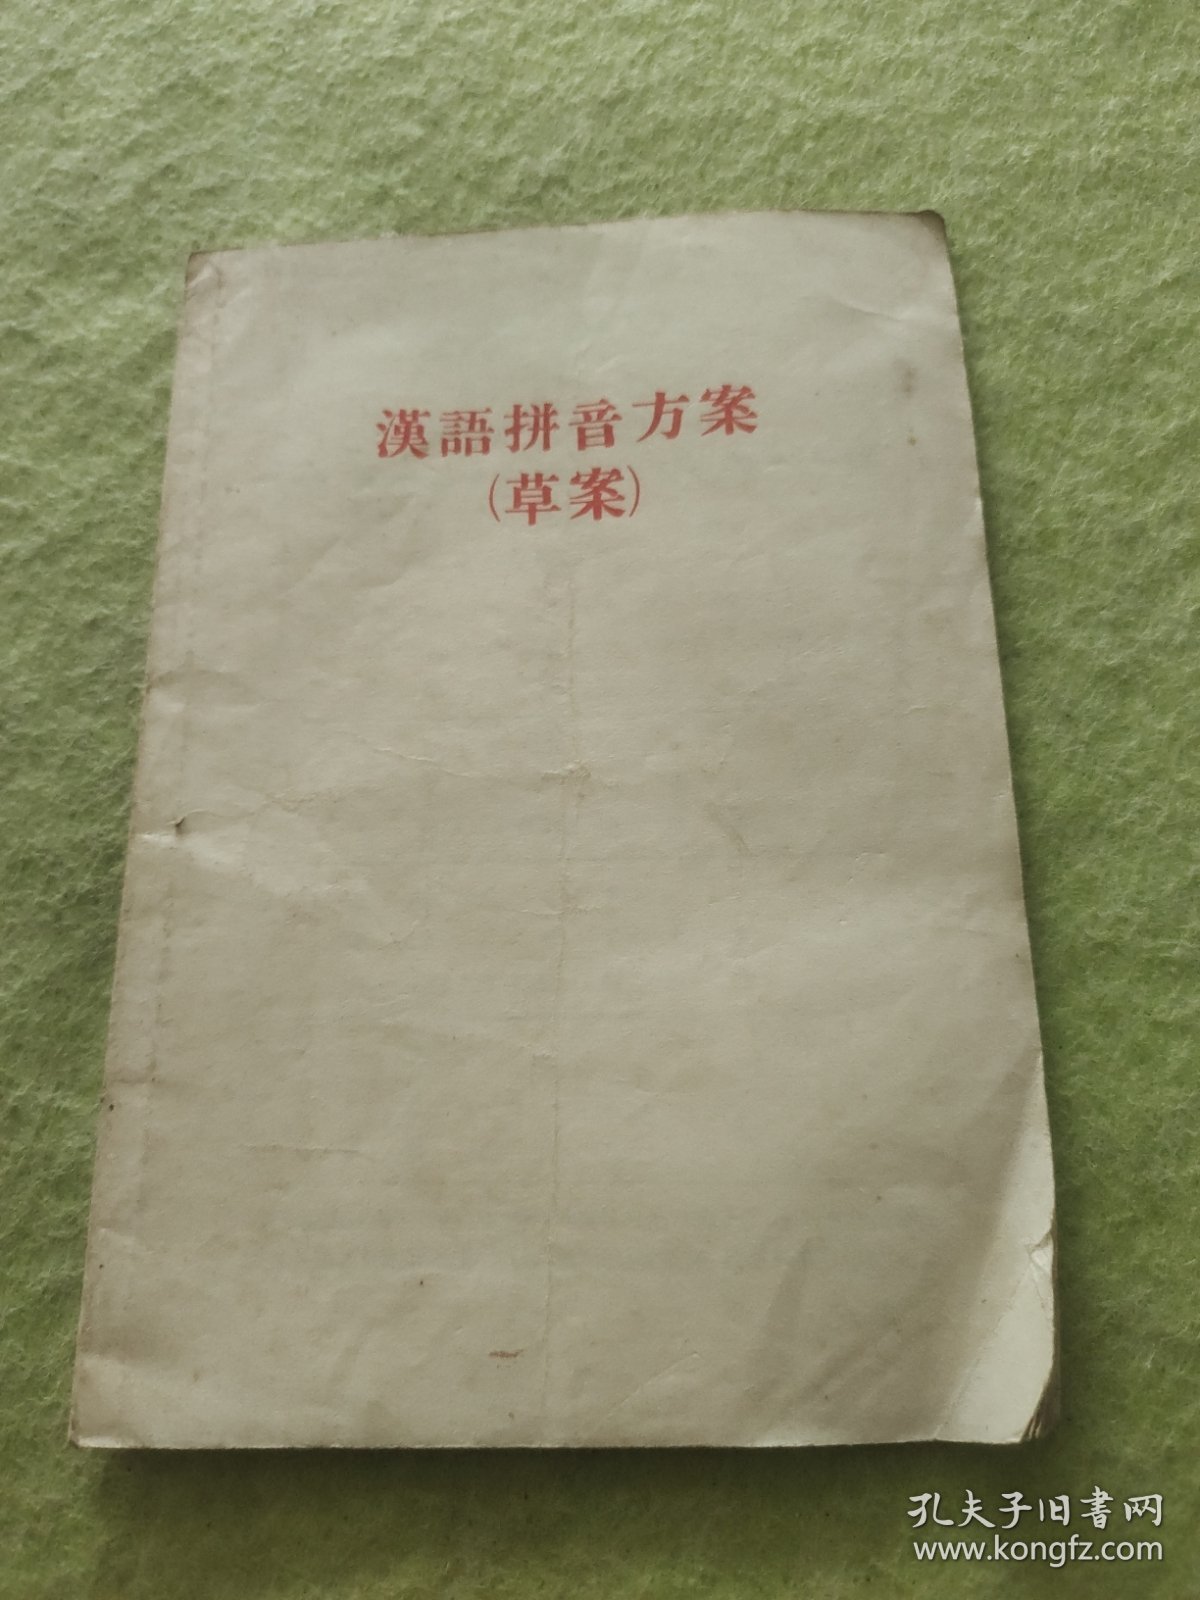 漢語拼音方案
(草案)
孔夫子旧書网
www.kongfz.com